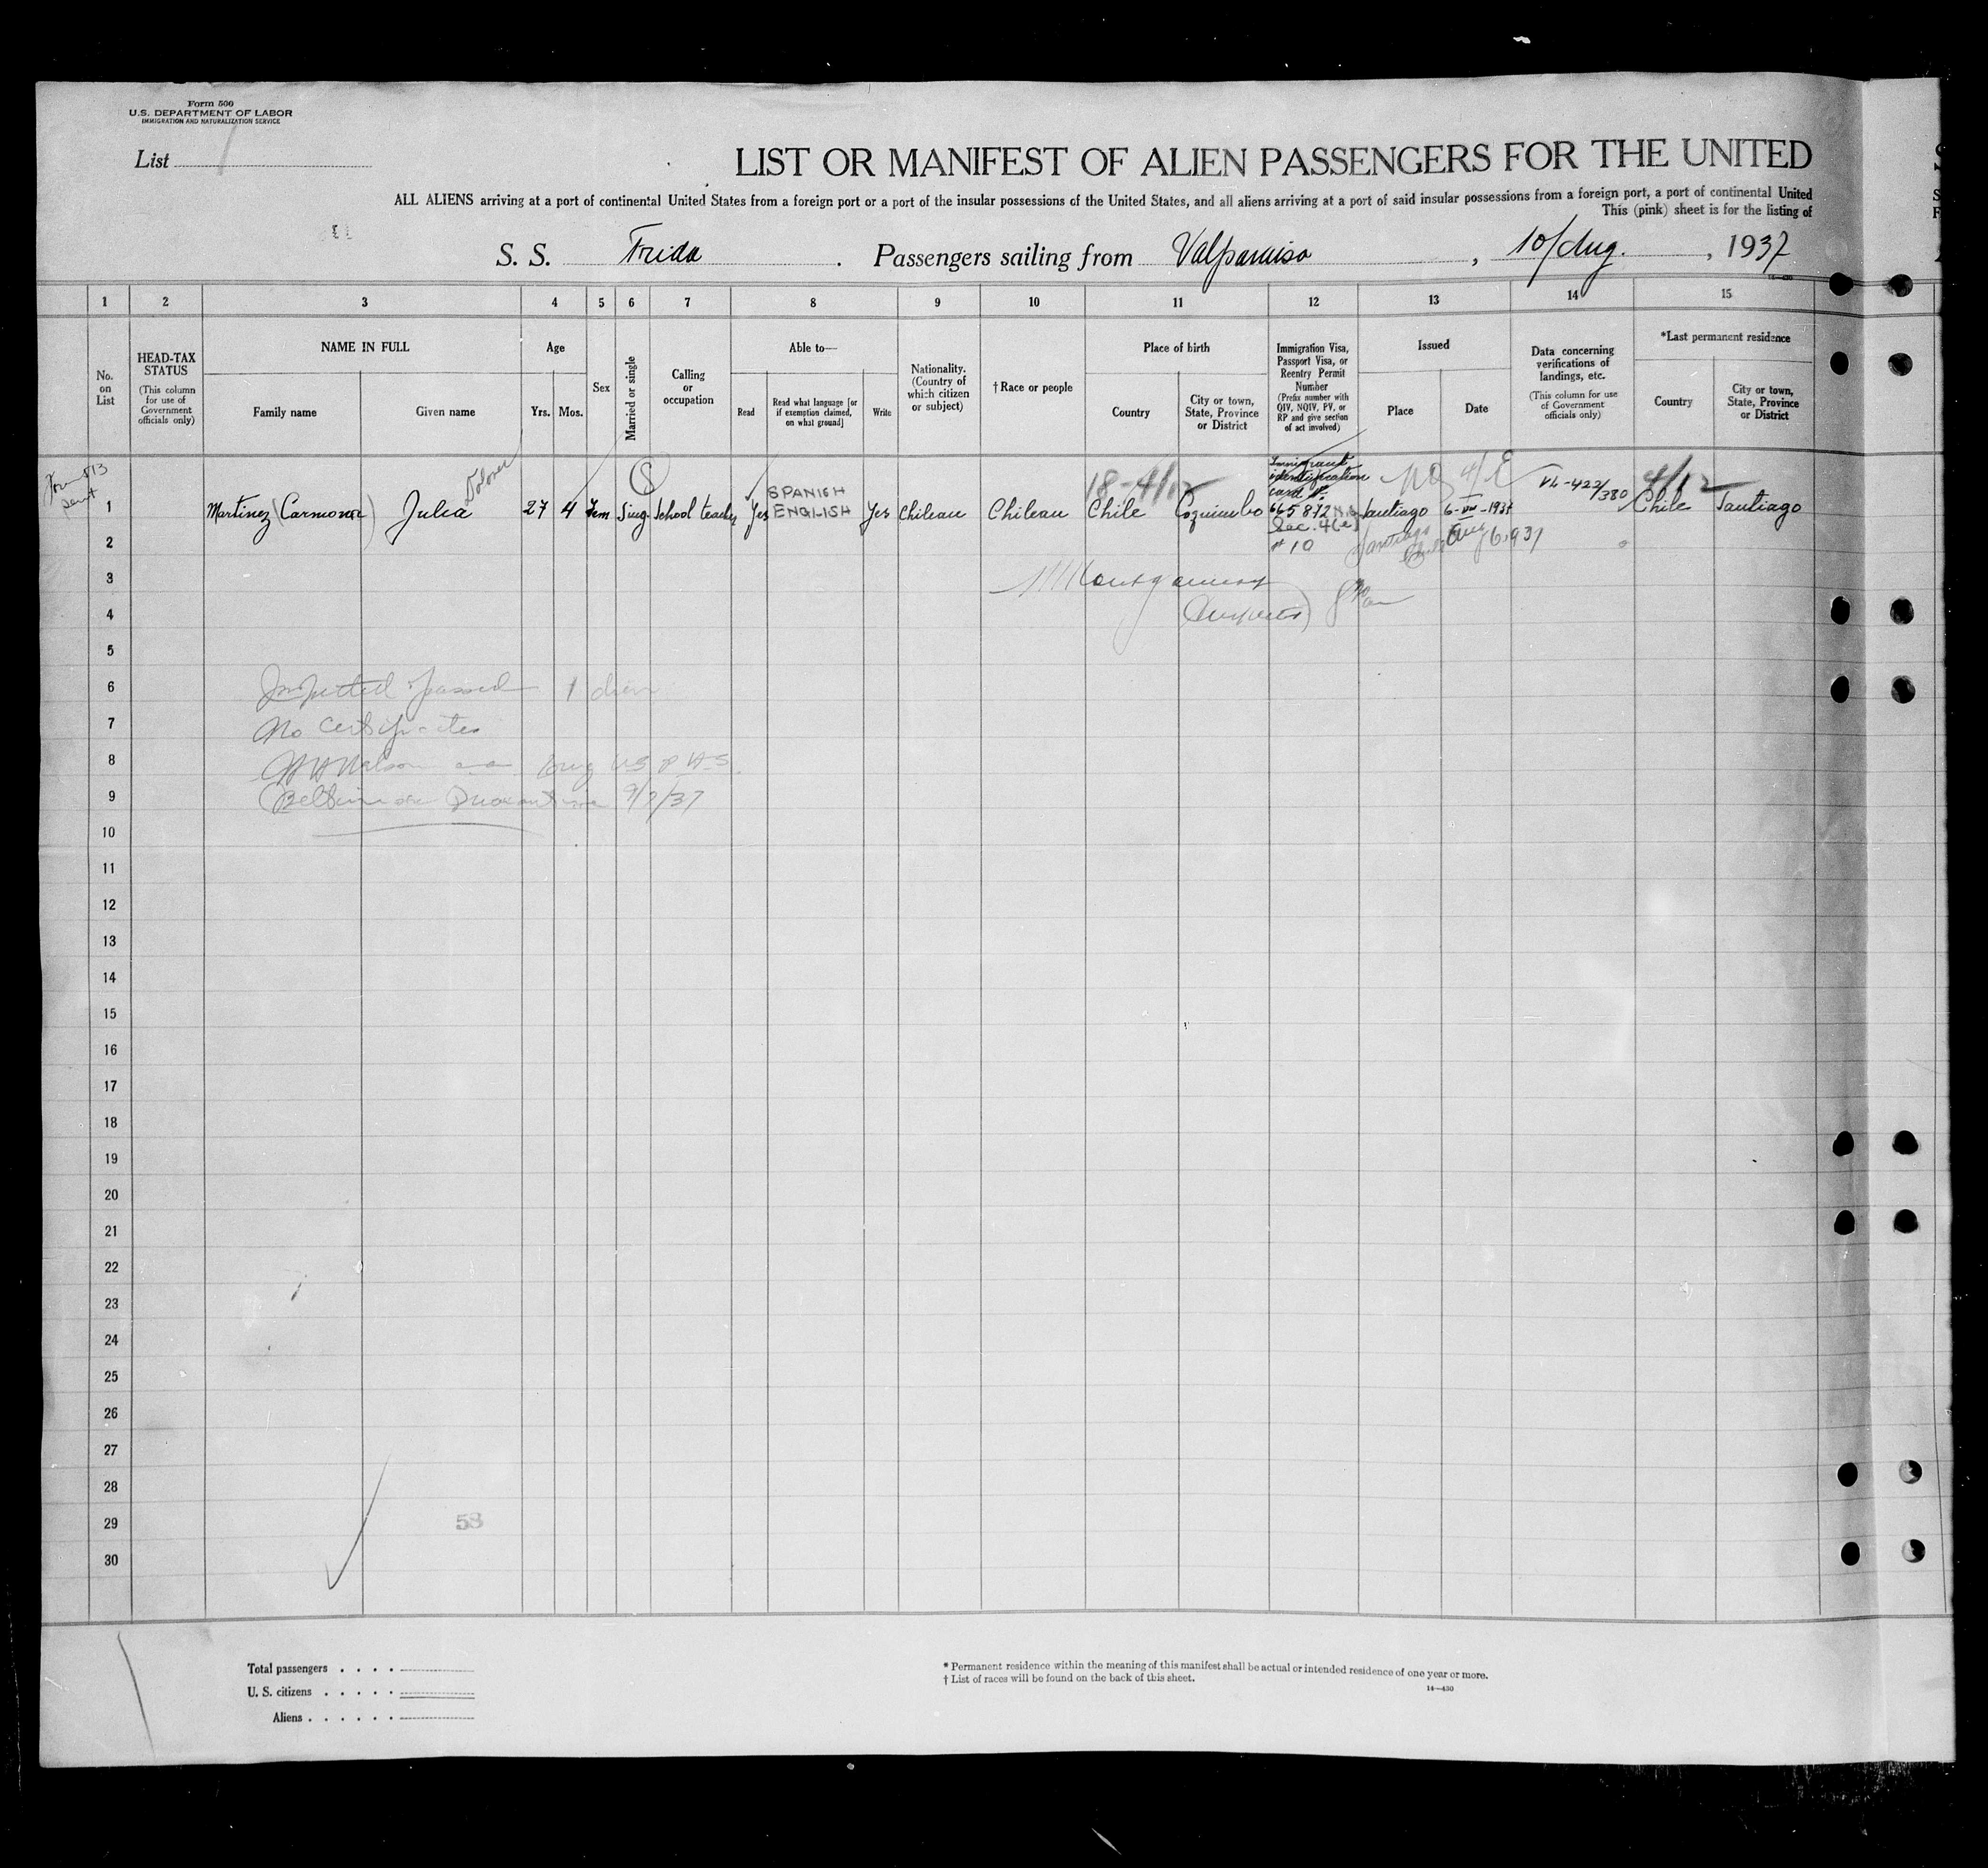 Form 500
U.S. DEPARTMENT OF LABOR
IMMIGRATION AND NATURALIZATION SERVICE
List
LIST OR MANIFEST OF ALIEN PASSENGERS FOR THE UNITED
ALL ALIENS arriving at a port of continental United States from a foreign port or a port of the insular possessions of the United States, and all aliens arriving at a port of said insular possessions from a foreign port, a port of continental United
This (pink) sheet is for the listing of
S. S. Frida. Passengers sailing from Valparaiso, 10/Aug., 1937
1 2 3 4 5 6 7 8 9 10 11 12 13 14 15
No. on List
HEAD-TAX STATUS
(This column for use of Government officials only)
NAME IN FULL
Family name
Given name
Age
Yrs. Mos.
Sex
Married or single
Calling or occupation
Able to—
Read
Read what language [or if exemption claimed, on what ground]
Write
Nationality. (Country of which citizen or subject)
†Race or people
Place of birth
Country
City or town, State, Province or District
Immigration Visa, Passport Visa, or Reentry Permit Number
(Prefix number with QIV, NQIV, PV, or RP and give section of act involved)
Issued
Place
Date
Data concerning verifications of landings, etc.
(This column for use of Government officials only)
*Last permanent residence
Country
City or town, State, Province or District
Form 513
sent
Dolores
S
18-4/12
Immigrant identification card N.
NQ 4/E
VL-422/380
4/12
1 Martinez (Carmona) Julia 27 4 Fem Sing. School teacher Yes SPANISH ENGLISH Yes Chilean Chilean Chile Coquimbo 665872 Santiago 6-VIII-1937 Chile Santiago
Sec. 4(e)
2 #10 Santiago Chile Aug 6, 1937
3 Montgomery
4
5
6 Inspected & passed 1 alien
7 No certificates
8 Nelson USPHS
9 Baltimore Quarantine 9/7/37
10
11
12
13
14
15
16
17
18
19
20
21
22
23
24
25
26
27
28
29 58
30
Total passengers . . . .
U. S. citizens . . . . .
Aliens . . . . . .
* Permanent residence within the meaning of this manifest shall be actual or intended residence of one year or more.
† List of races will be found on the back of this sheet.
14—430